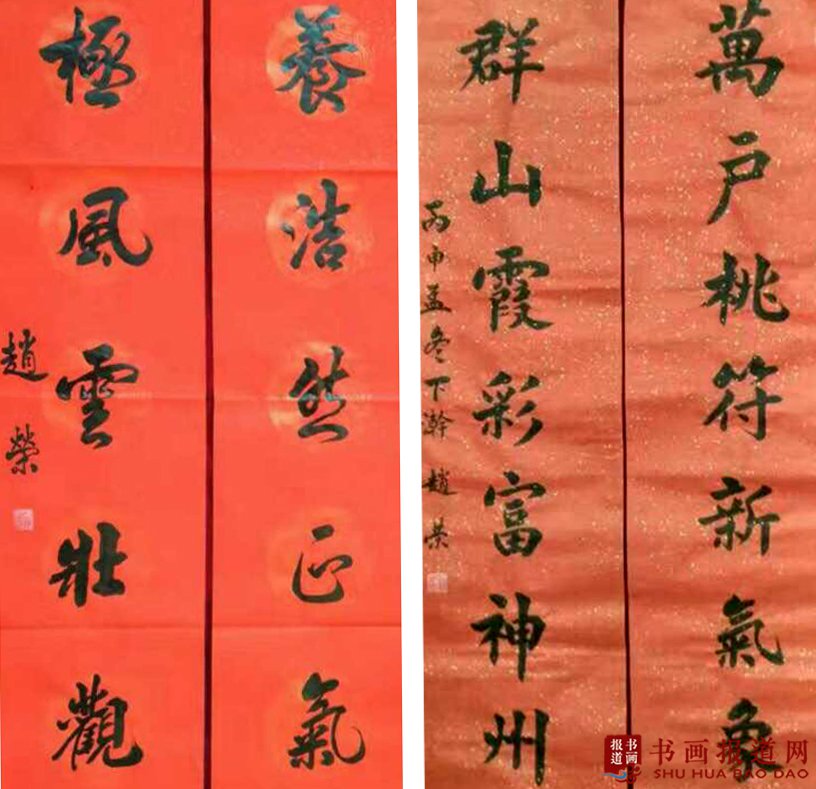 養浩然正氣
極風雲壯觀
趙榮
萬户桃符新氣象
群山霞彩富神州
丙申孟冬下澣 趙荣
书画
报道
书画报道网
SHU HUA BAO DAO